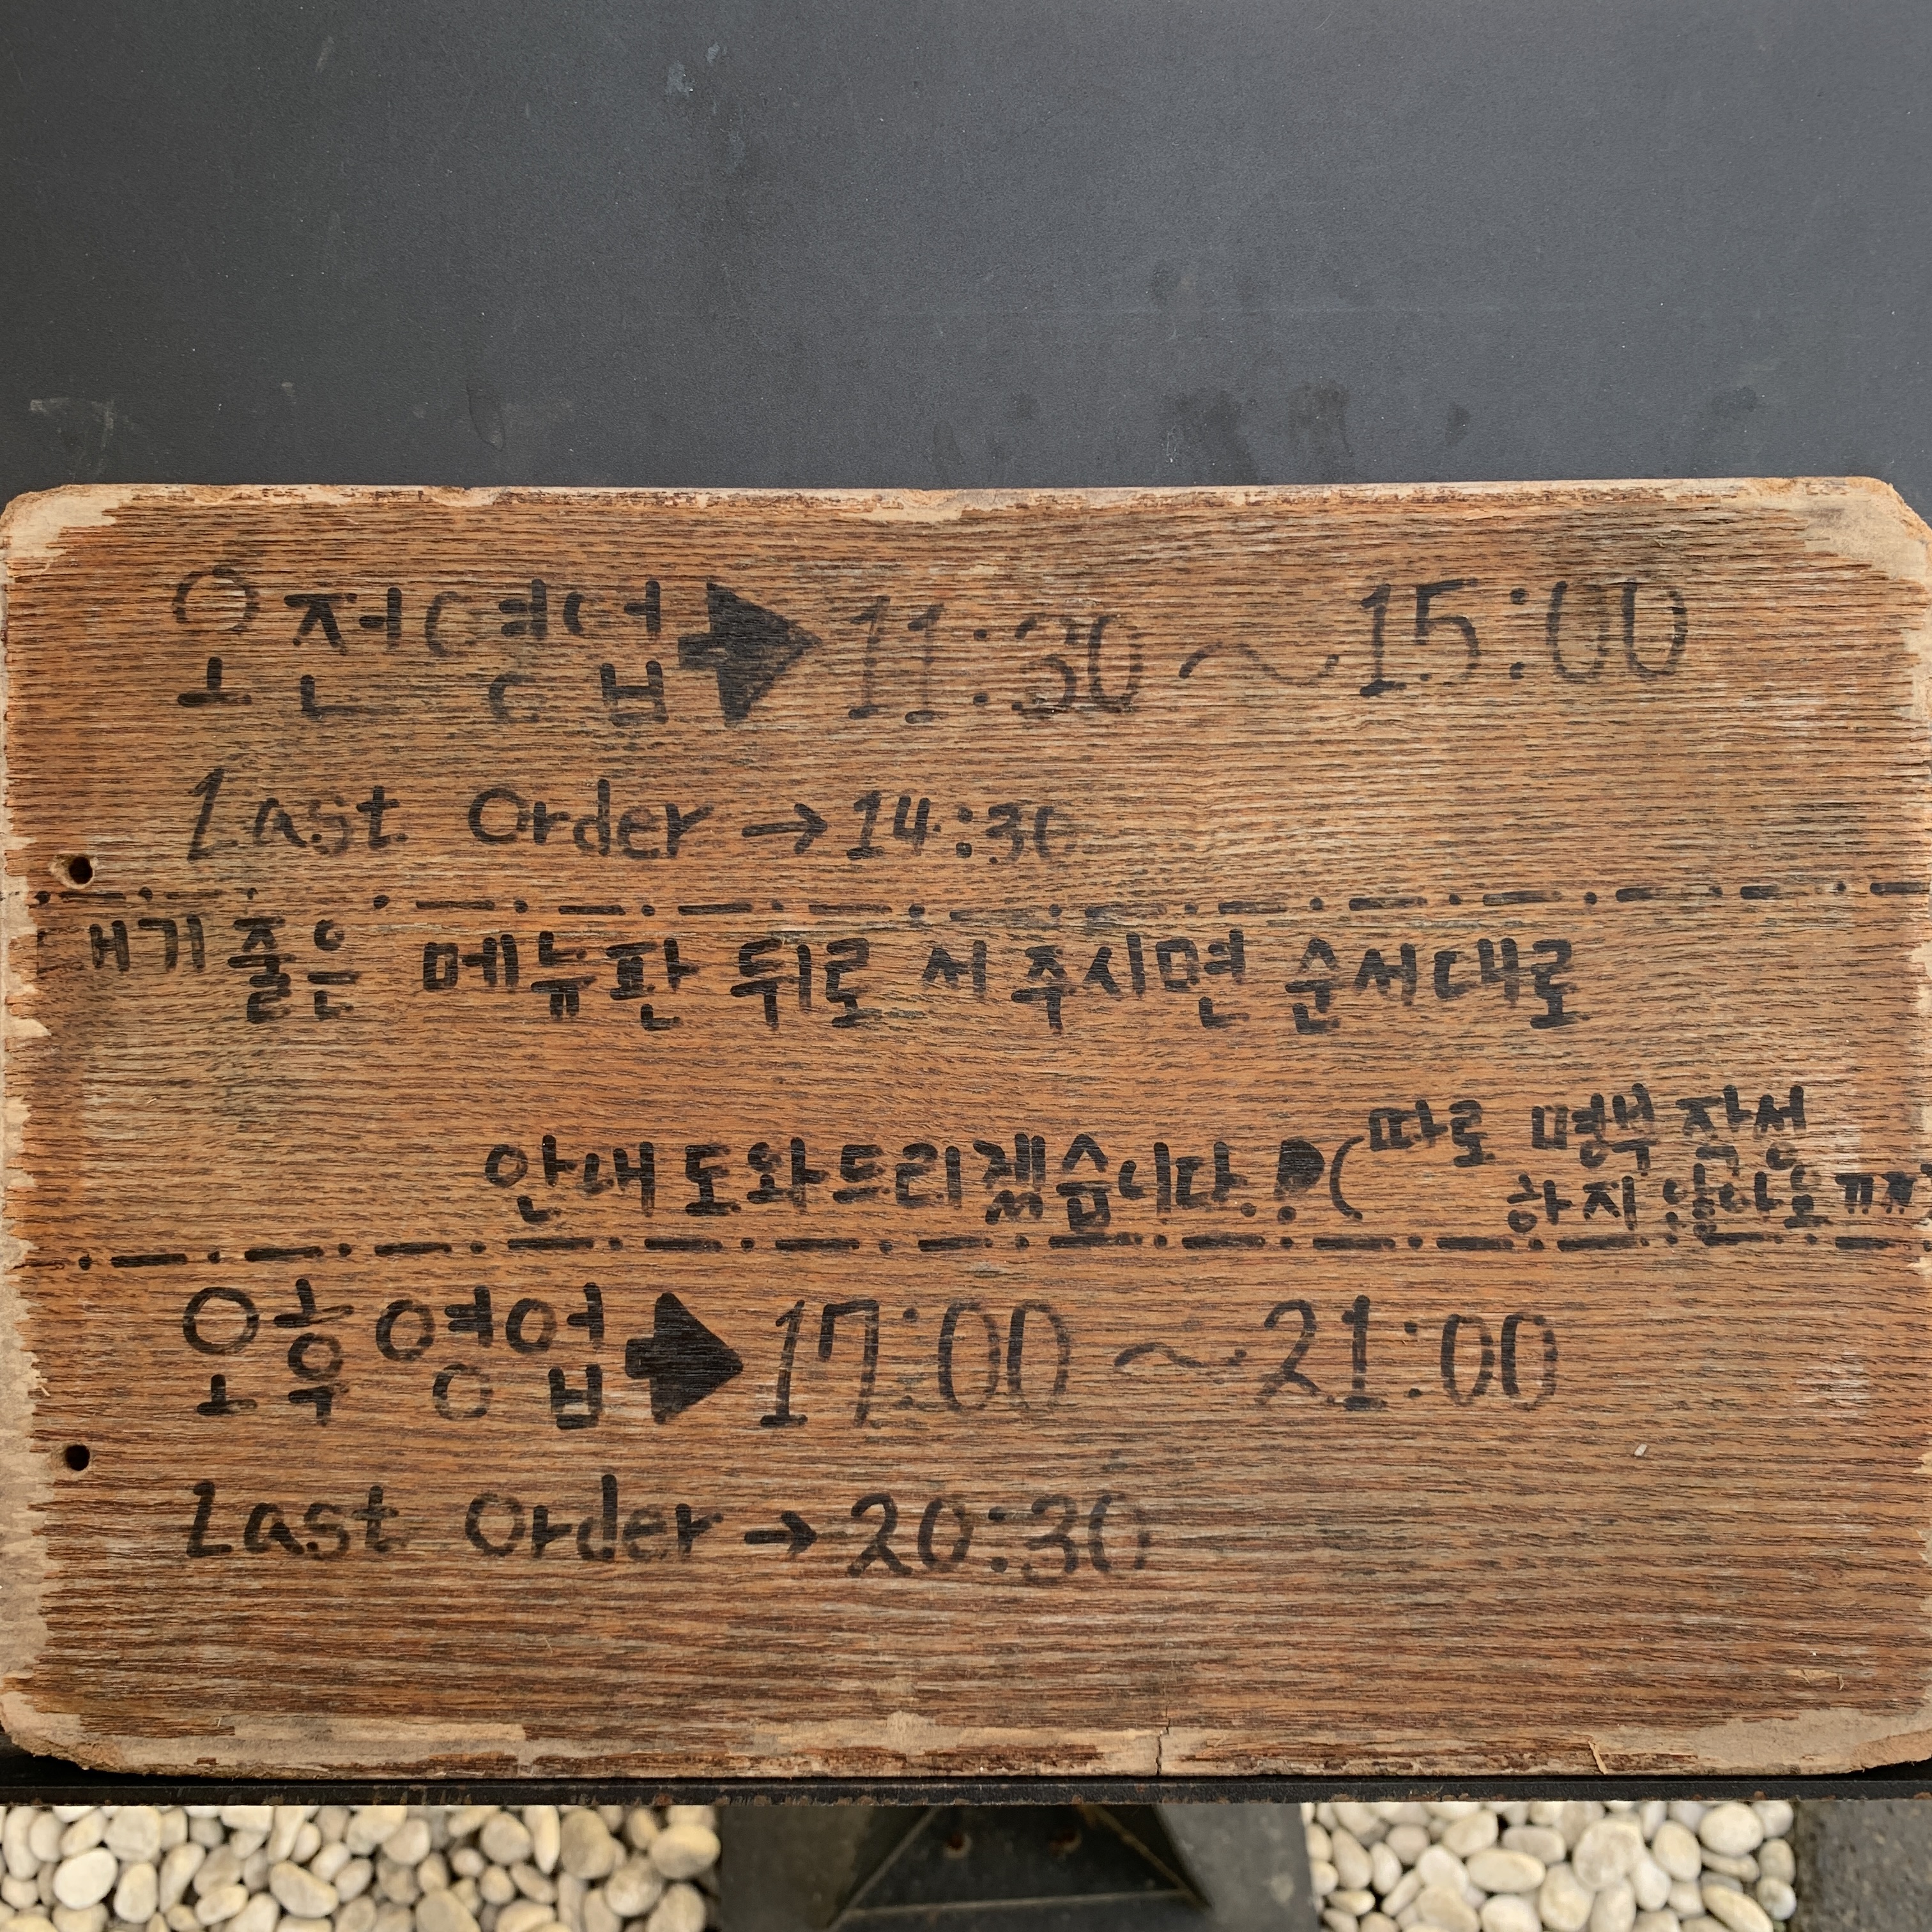 오전영업➡11:30 ~ 15:00
Last Order → 14:30
대기줄은 메뉴판 뒤로 서주시면 순서대로
안내도와드리겠습니다.!
(따로 명부 작성
하지 않아요ㅠㅠ)
오후영업➡17:00 ~ 21:00
Last Order → 20:30